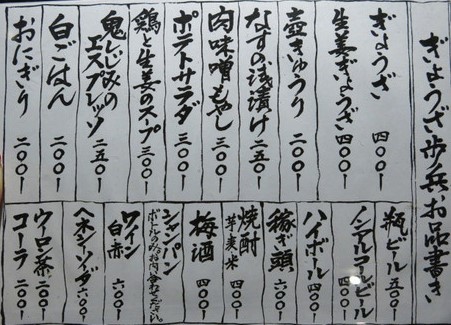 ぎょうざ歩兵お品書き
ぎょうざ 四〇〇-
生姜ぎょうざ 四〇〇-
壺きゅうり 二〇〇-
なすの浅漬け 二五〇-
肉味噌もやし 三〇〇-
ポテトサラダ 三〇〇-
鶏と生姜のスープ 三〇〇-
鬼しじみの
エスプレッソ 二五〇-
白ごはん 二〇〇-
おにぎり 二〇〇-
瓶ビール 五〇〇-
ノンアルコールビール 四〇〇-
ハイボール 四〇〇-
稼ぎ頭 六〇〇-
焼酎
芋麦米 四〇〇-
梅酒 四〇〇-
シャンパン
ワイン
白赤 六〇〇-
ヘネシーソーダ 六〇〇-
ウーロン茶 二〇〇-
コーラ 二〇〇-